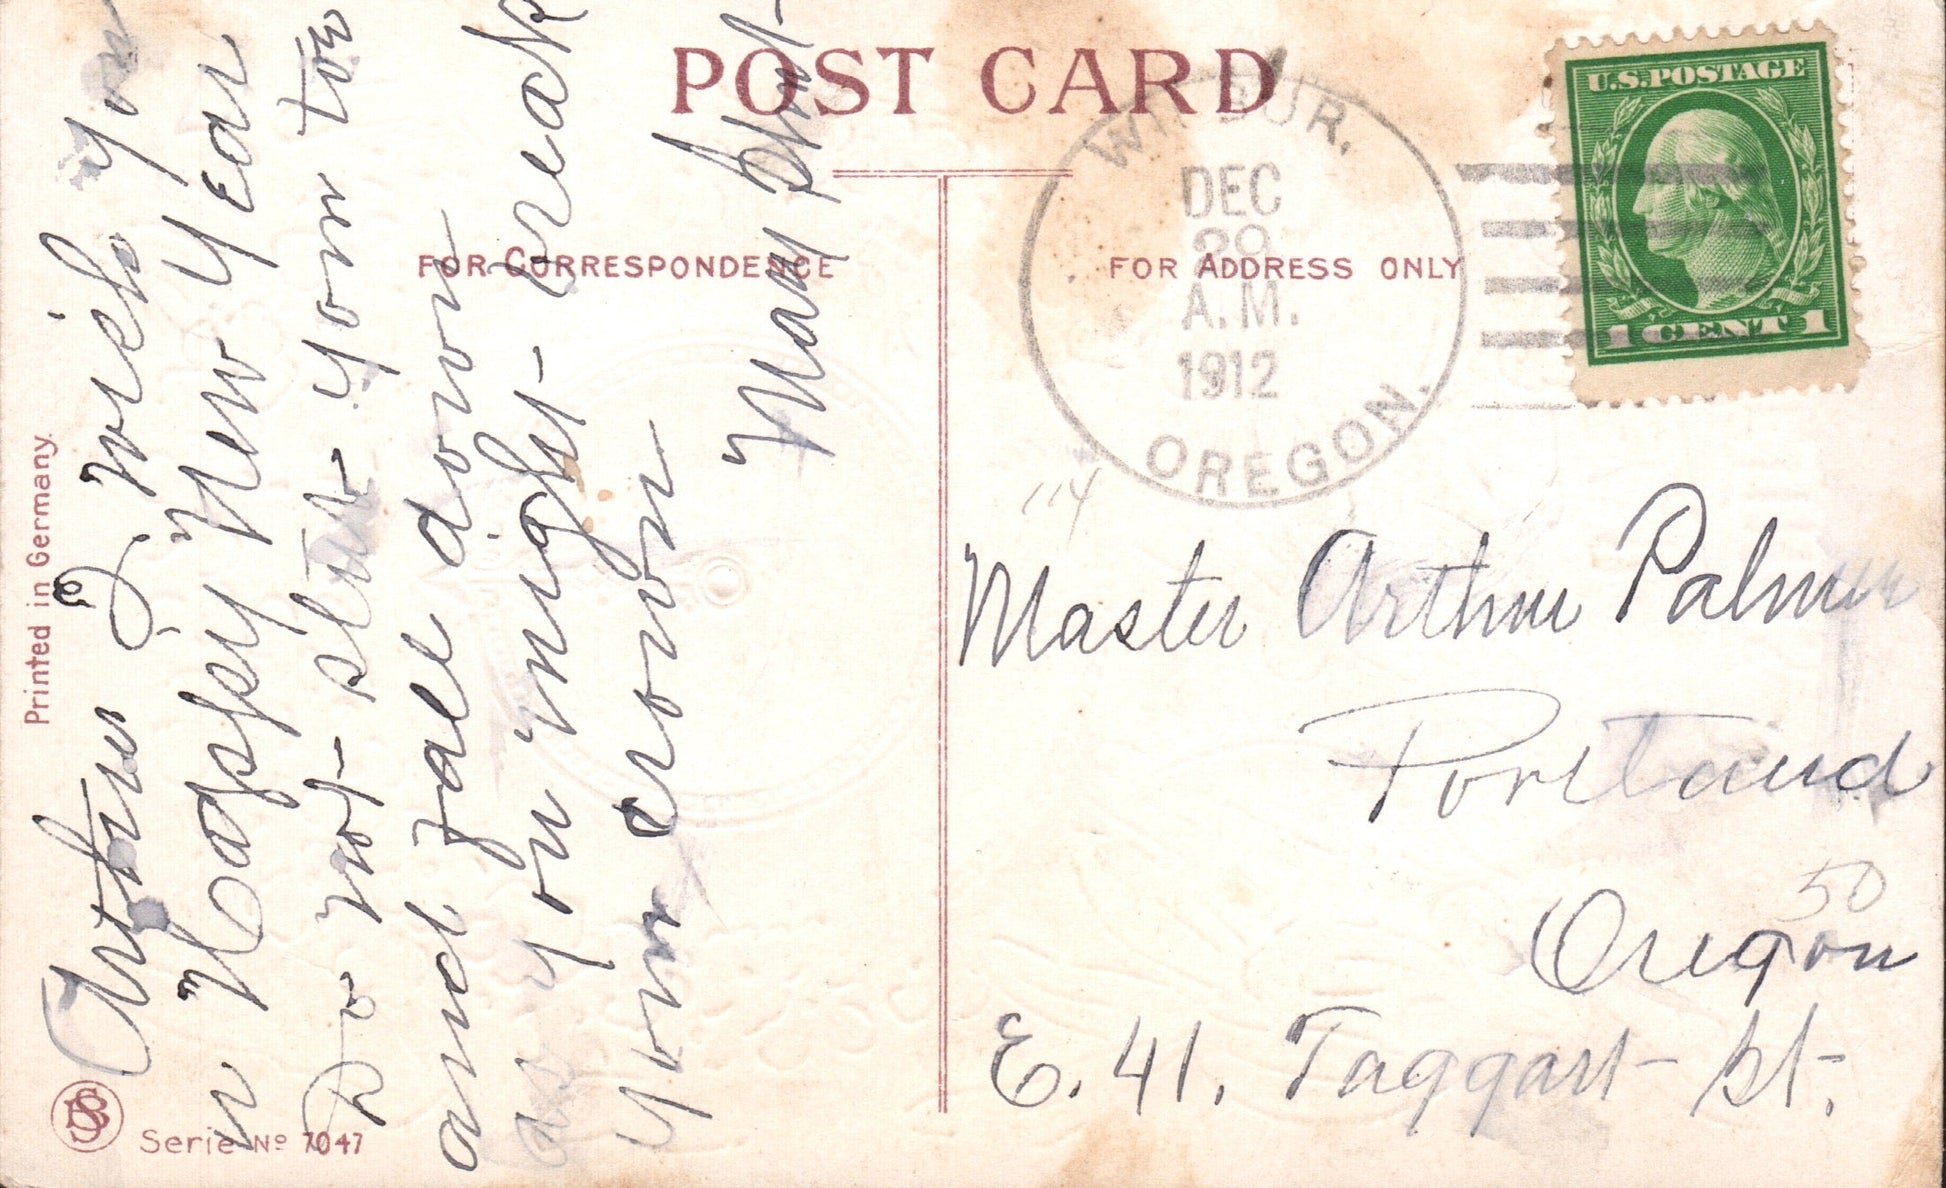 POST CARD
FOR CORRESPONDENCE
FOR ADDRESS ONLY
Printed in Germany.
Serie Nº 7047
WILBUR.
DEC
A.M.
1912
OREGON.
U.S. POSTAGE
1 CENT 1
Arthur I wish you
a Happy New Year
Do not slut your toe
and fall down
as you might break
your crown
114
Master Arthur Palmer
Portland
50
Oregon
E. 41. Taggart St.